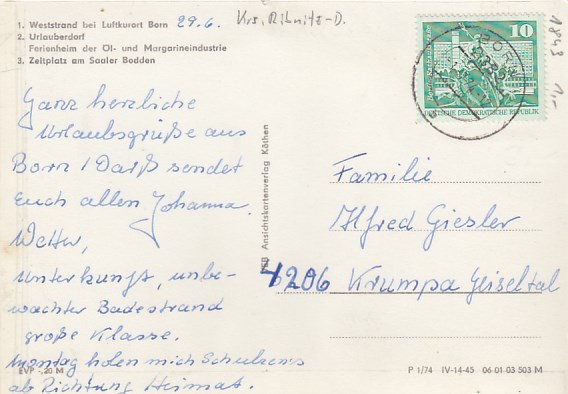 1. Weststrand bei Luftkurort Born 29.6. Krs. Ribnitz-D.
2. Urlauberdorf
Ferienheim der Öl- und Margarineindustrie
3. Zeltplatz am Saaler Bodden
Ganz herzliche
Urlaubsgrüße aus
Born / Darß sendet
Euch allen Johanna.
Wetter,
Unterkunft, unbe-
wachter Badestrand
große Klasse.
Montag holen mich Schulzens
ab Richtung Heimat.
EVP -,20 M
VEB Ansichtskartenverlag Köthen
10
DEUTSCHE DEMOKRATISCHE REPUBLIK
BORN
1843
1,-
Familie
Alfred Giesler
4206 Krumpa Geiseltal
P 1/74 IV-14-45 06 01 03 503 M